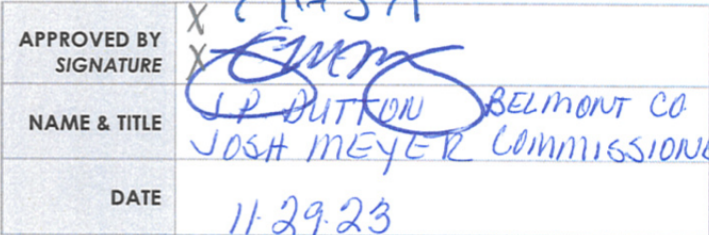 APPROVED BY
SIGNATURE
X
X
NAME & TITLE
J.P. DUTTON BELMONT CO
JOSH MEYER COMMISSIONE
DATE
11.29.23